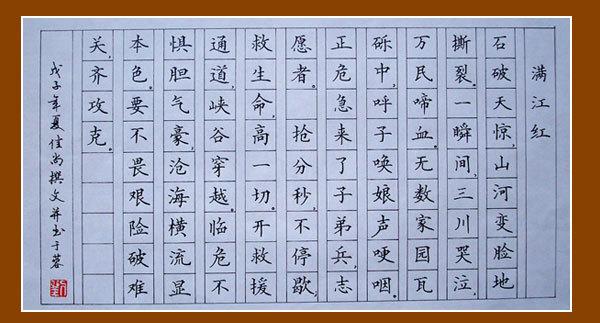 满江红
石破天惊,山河变脸地
撕裂。一瞬间,三川哭泣,
万民啼血。无数家园瓦
砾中,呼子唤娘声哽咽。
正危急来了子弟兵,志
愿者。 抢分秒,不停歇,
救生命,高一切。开救援
通道,峡谷穿越。临危不
惧胆气豪,沧海横流显
本色。要不畏艰险破难
关,齐攻克。
戊子年夏佳尚撰文并书于蓉